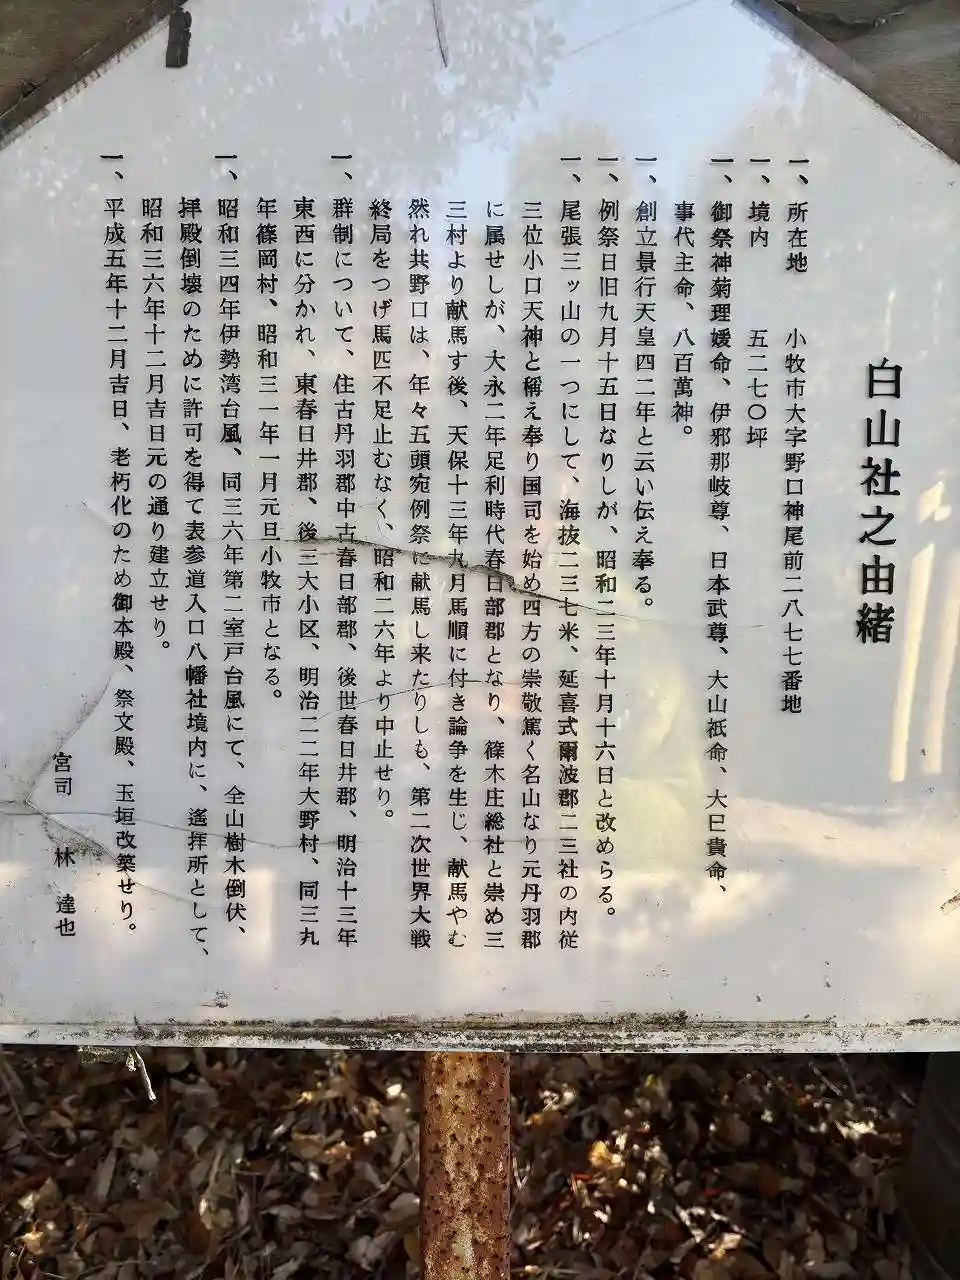 白山社之由緒
一、所在地　小牧市大字野口神尾前二八七七番地
一、境内　五二七〇坪
一、御祭神菊理媛命、伊邪那岐尊、日本武尊、大山祇命、大巳貴命、
事代主命、八百萬神。
一、創立景行天皇四二年と云い伝え奉る。
一、例祭日旧九月十五日なりしが、昭和二三年十月十六日と改めらる。
一、尾張三ッ山の一つにして、海抜二三七米、延喜式爾波郡二三社の内従
三位小口天神と稱え奉り国司を始め四方の崇敬篤く名山なり元丹羽郡
に属せしが、大永二年足利時代春日部郡となり、篠木庄総社と崇め三
三村より献馬す後、天保十三年九月馬順に付き論争を生じ、献馬やむ
然れ共野口は、年々五頭宛例祭に献馬し来たりしも、第二次世界大戦
終局をつげ馬匹不足止むなく、昭和二六年より中止せり。
一、群制について、往古丹羽郡中古春日部郡、後世春日井郡、明治十三年
東西に分かれ、東春日井郡、後三大小区、明治二二年大野村、同三九
年篠岡村、昭和三一年一月元旦小牧市となる。
一、昭和三四年伊勢湾台風、同三六年第二室戸台風にて、全山樹木倒伏、
拝殿倒壊のために許可を得て表参道入口八幡社境内に、遙拝所として、
昭和三六年十二月吉日元の通り建立せり。
一、平成五年十二月吉日、老朽化のため御本殿、祭文殿、玉垣改築せり。
宮司　林　達也